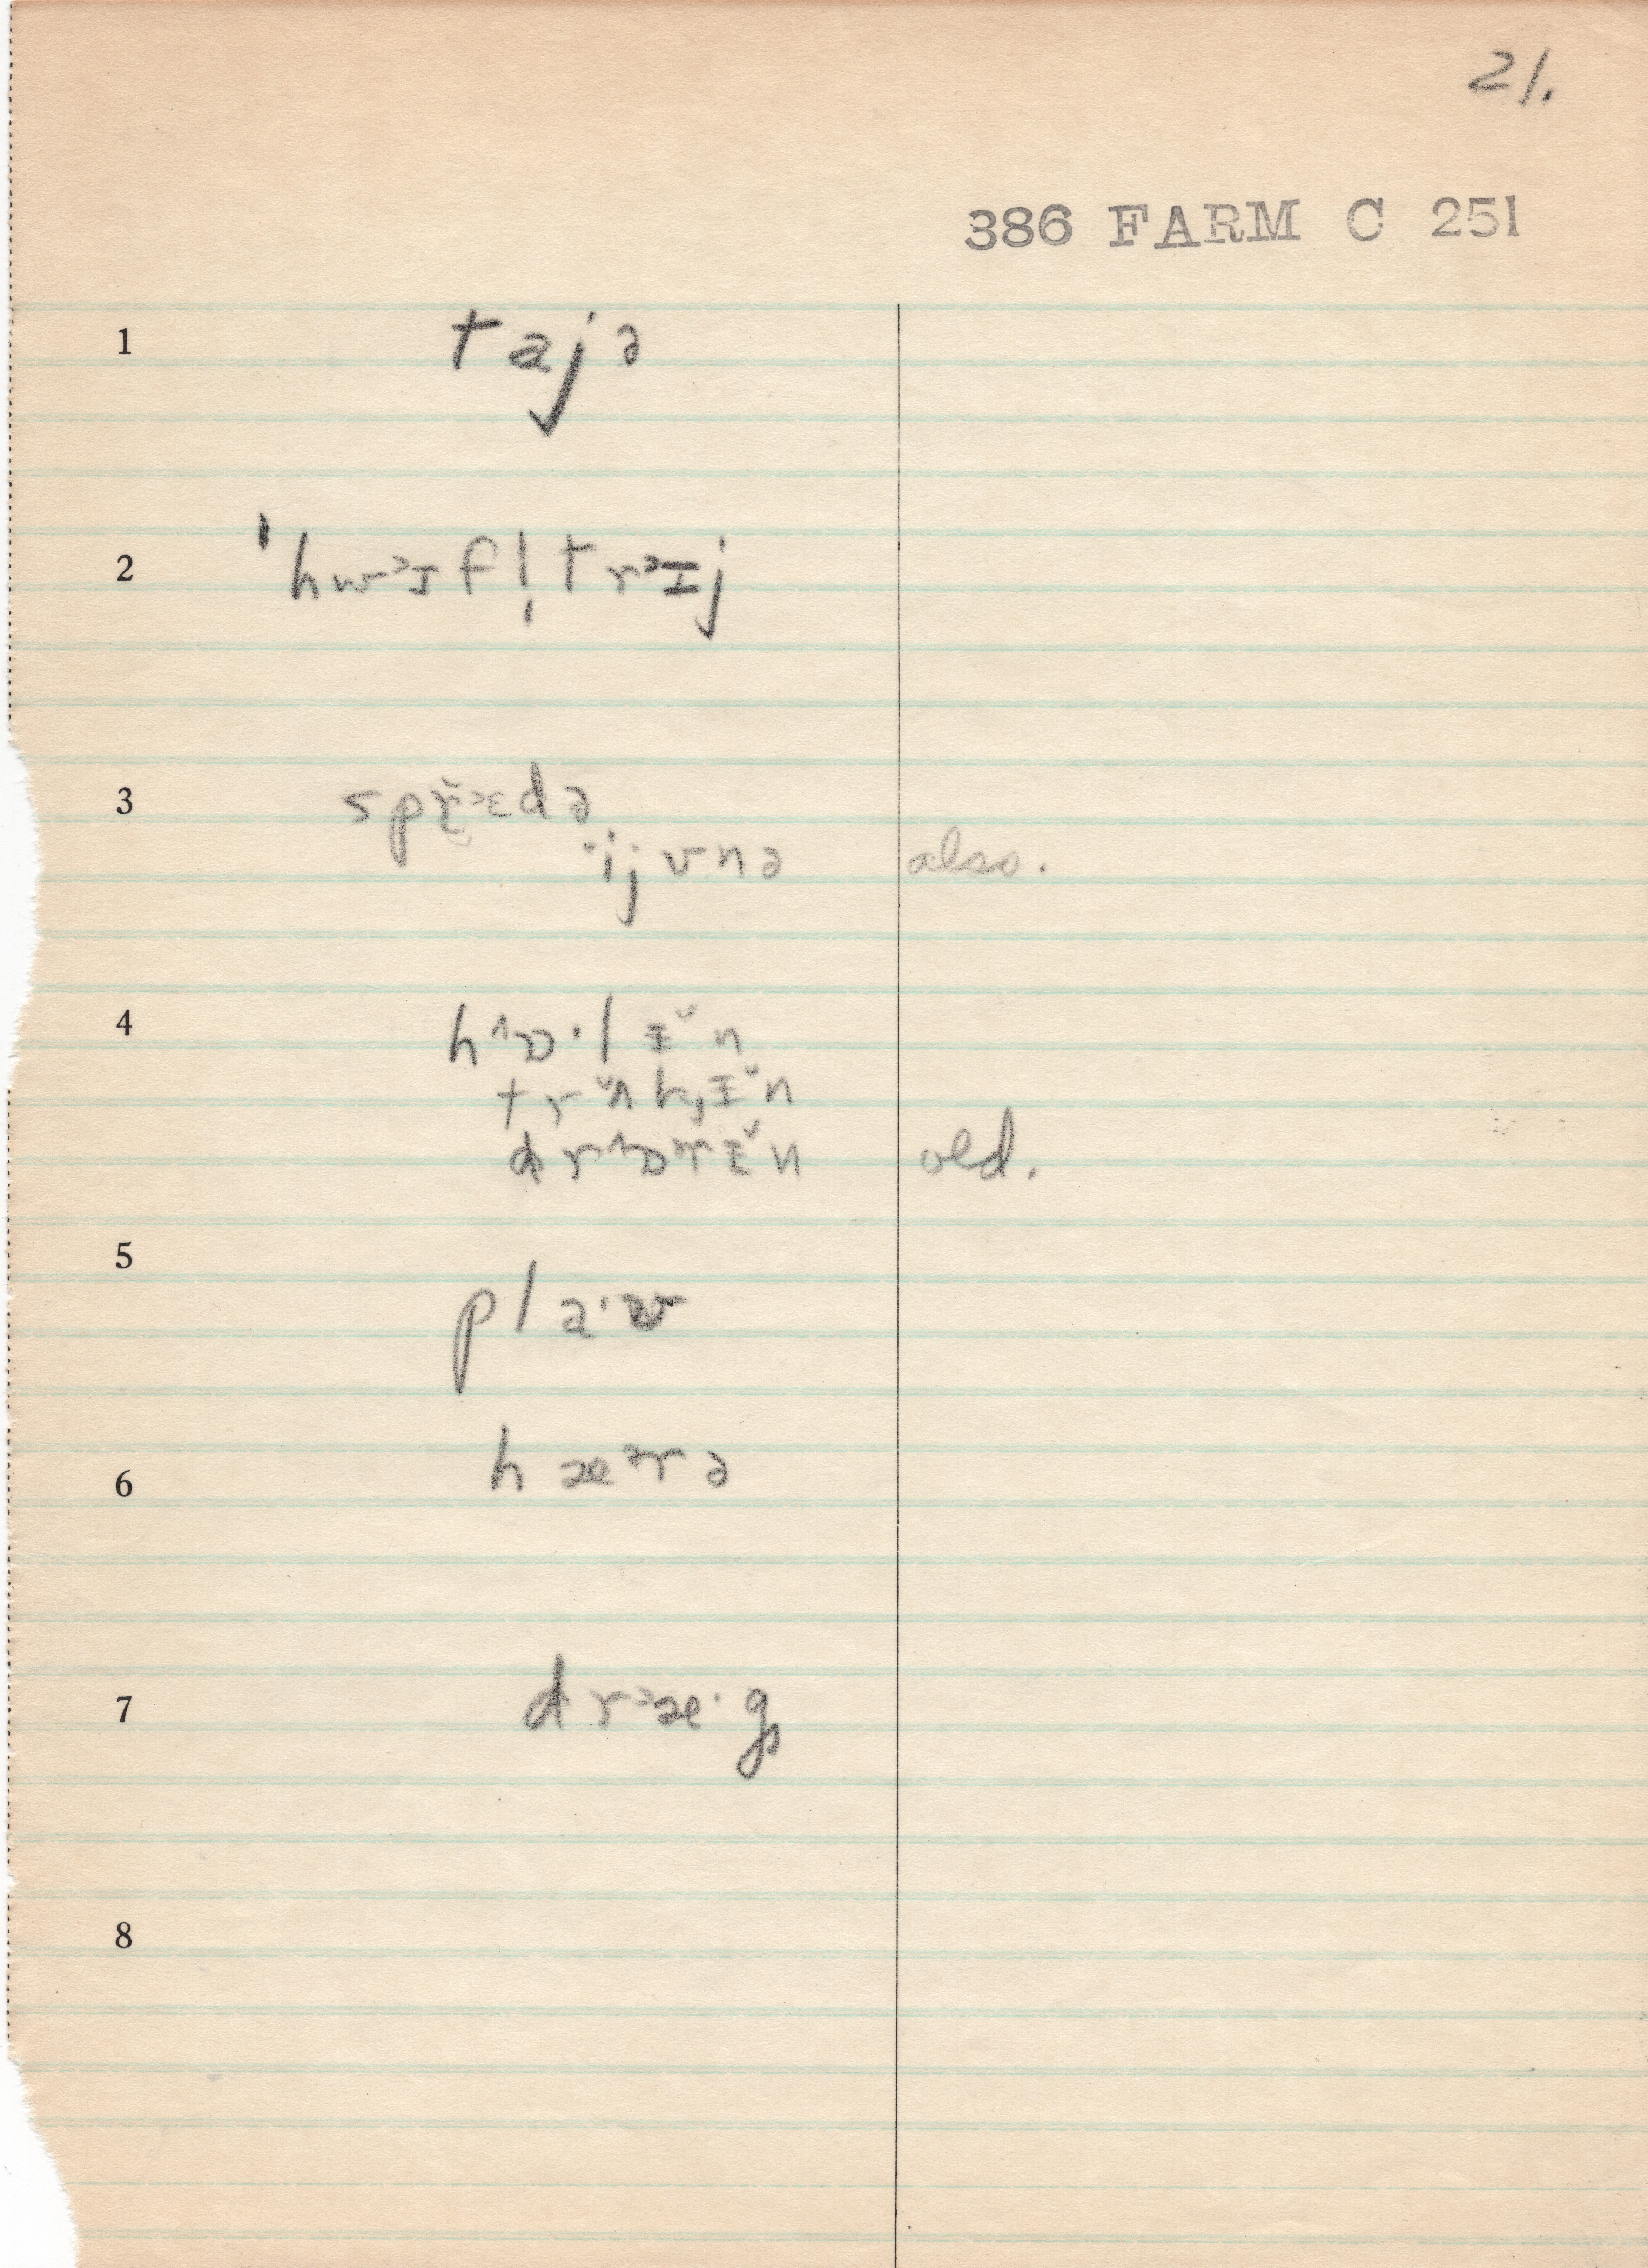 21.
386 FARM C 251
1 tajə
2 ˈhwᵊɪfl̩trᵊɪj
3 spr̆ᵊɛdə
ˑijʊnə also.
4 hᶺɒˑlɪ̆n
trʌ̆kɪ̆n
drᶺɒᵊɪ̆n old.
5 plaˑʊ
6 hæᵊrə
7 drᵊæˑg
8